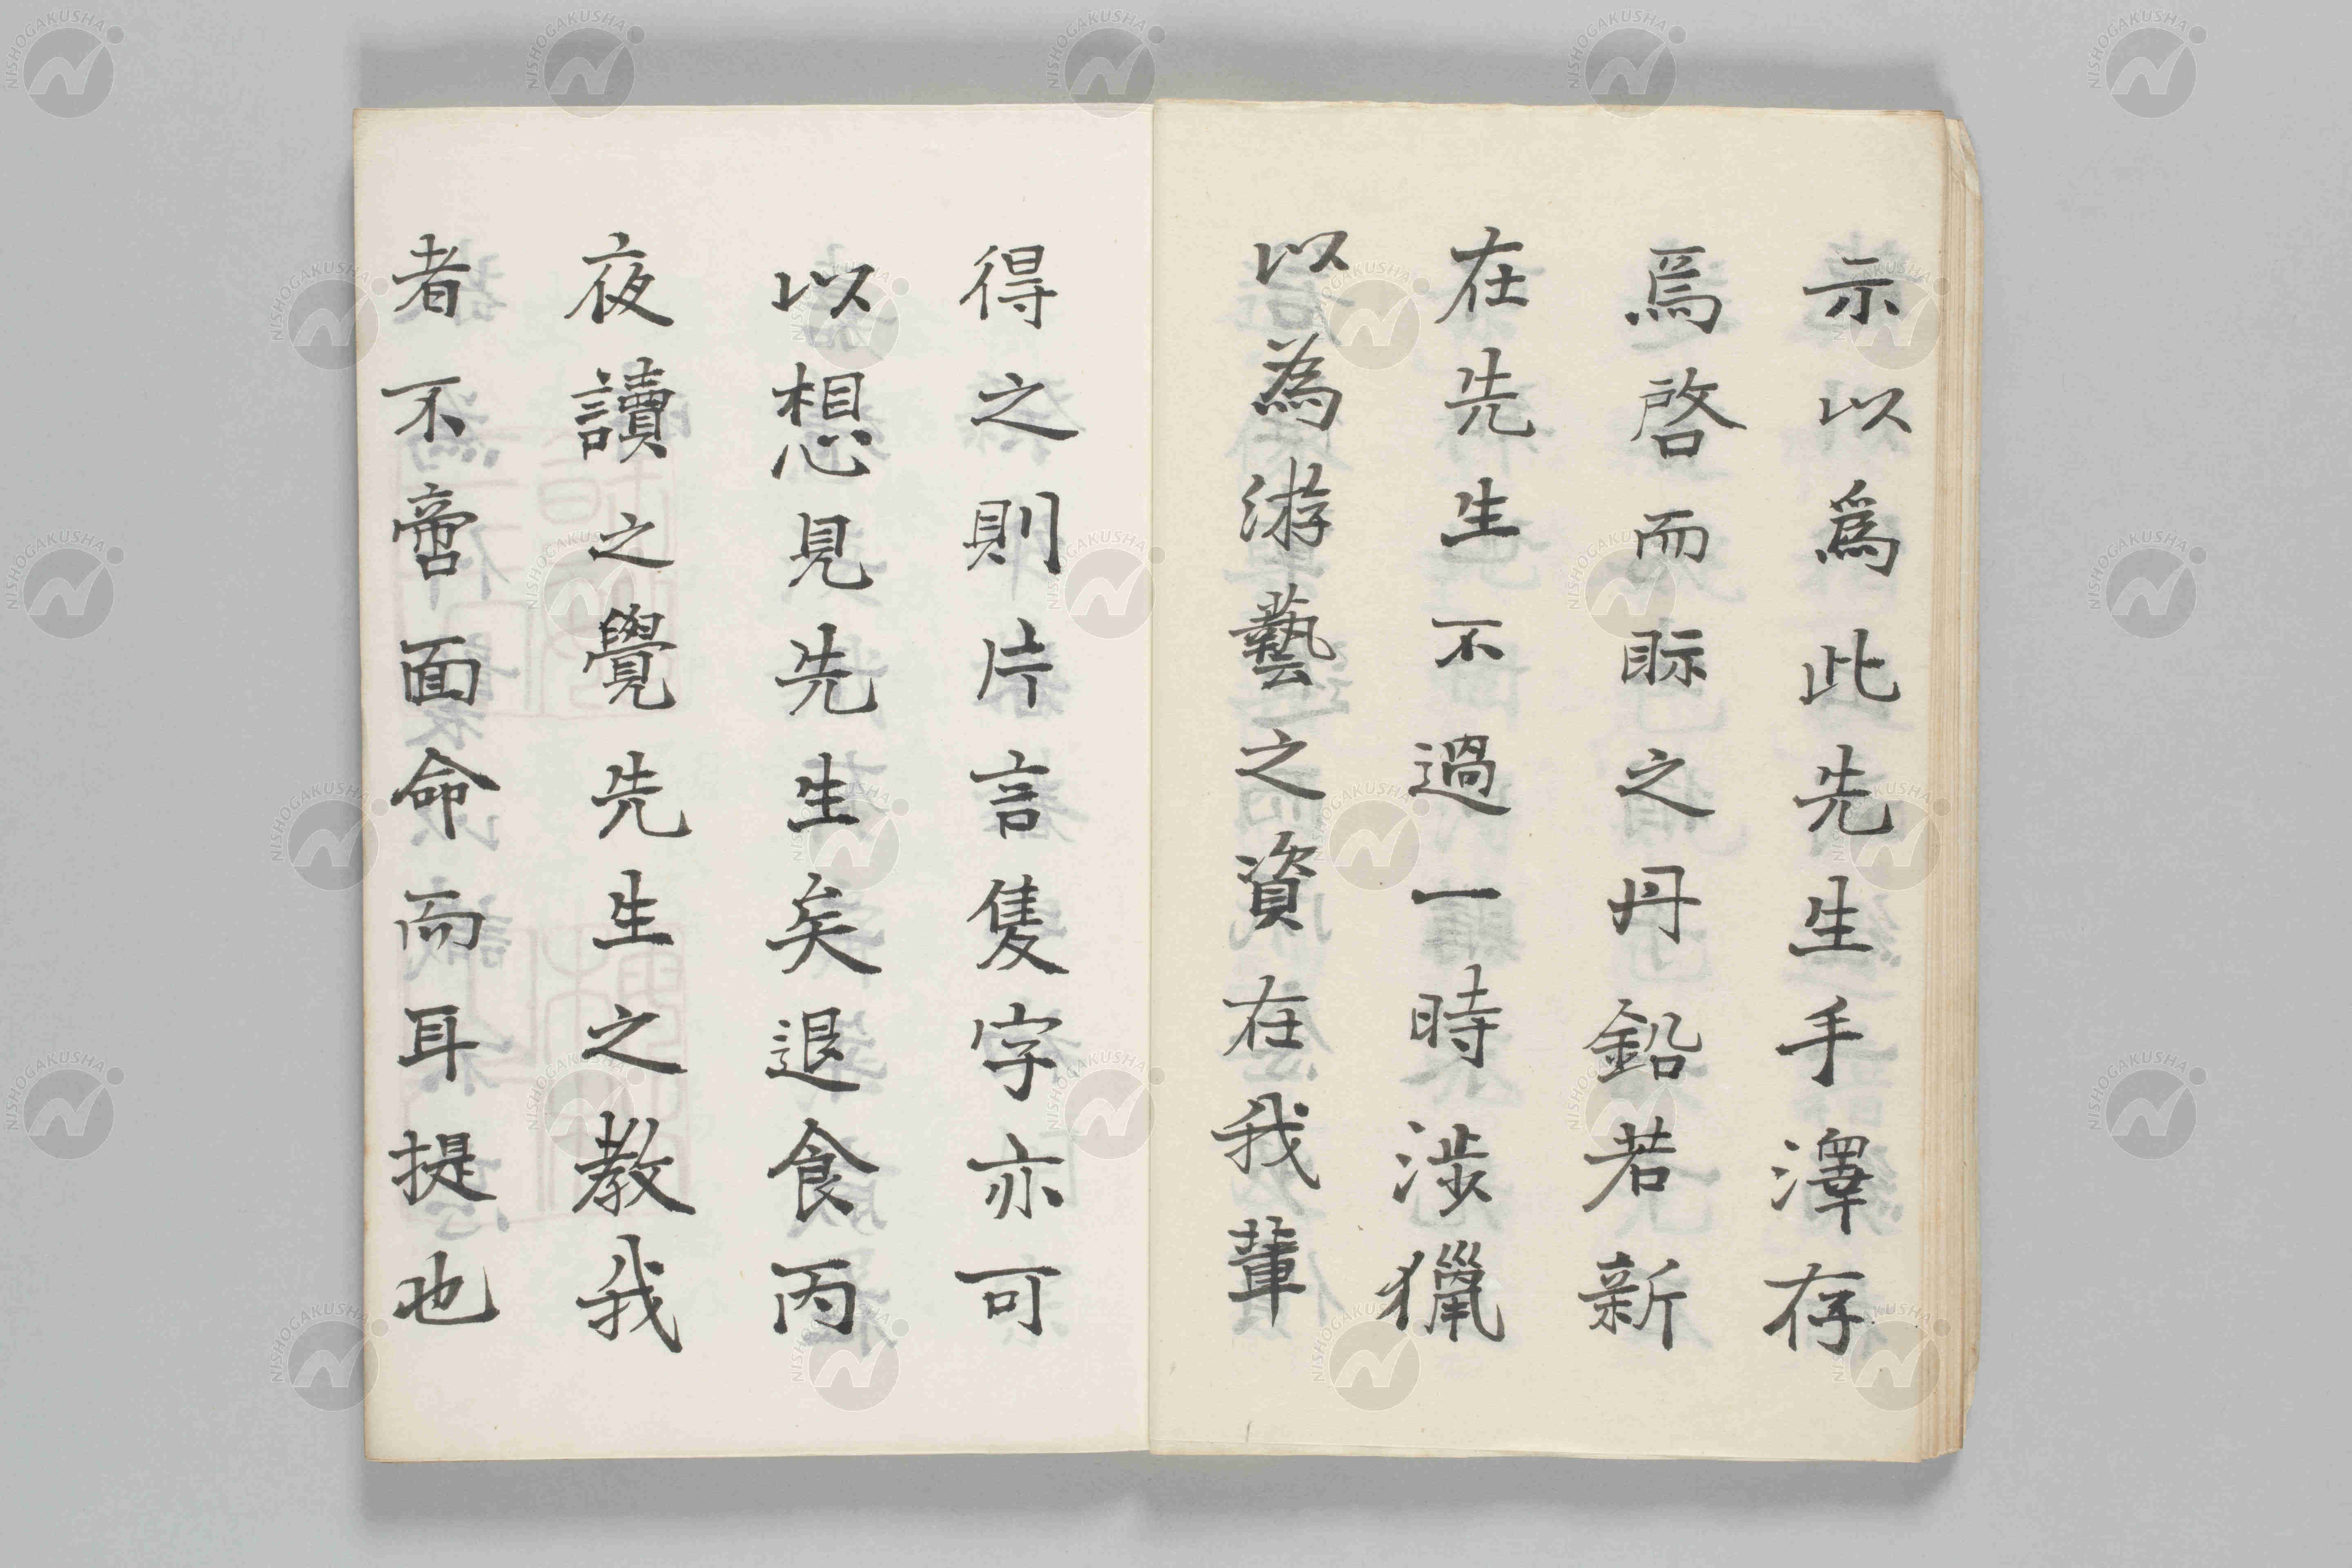 示以爲此先生手澤存
焉啓而眎之丹鉛若新
在先生不過一時涉獵
以為游藝之資在我輩
得之則片言隻字亦可
以想見先生矣退食丙
夜讀之覺先生之教我
者不啻面命而耳提也
NISHOGAKUSHA